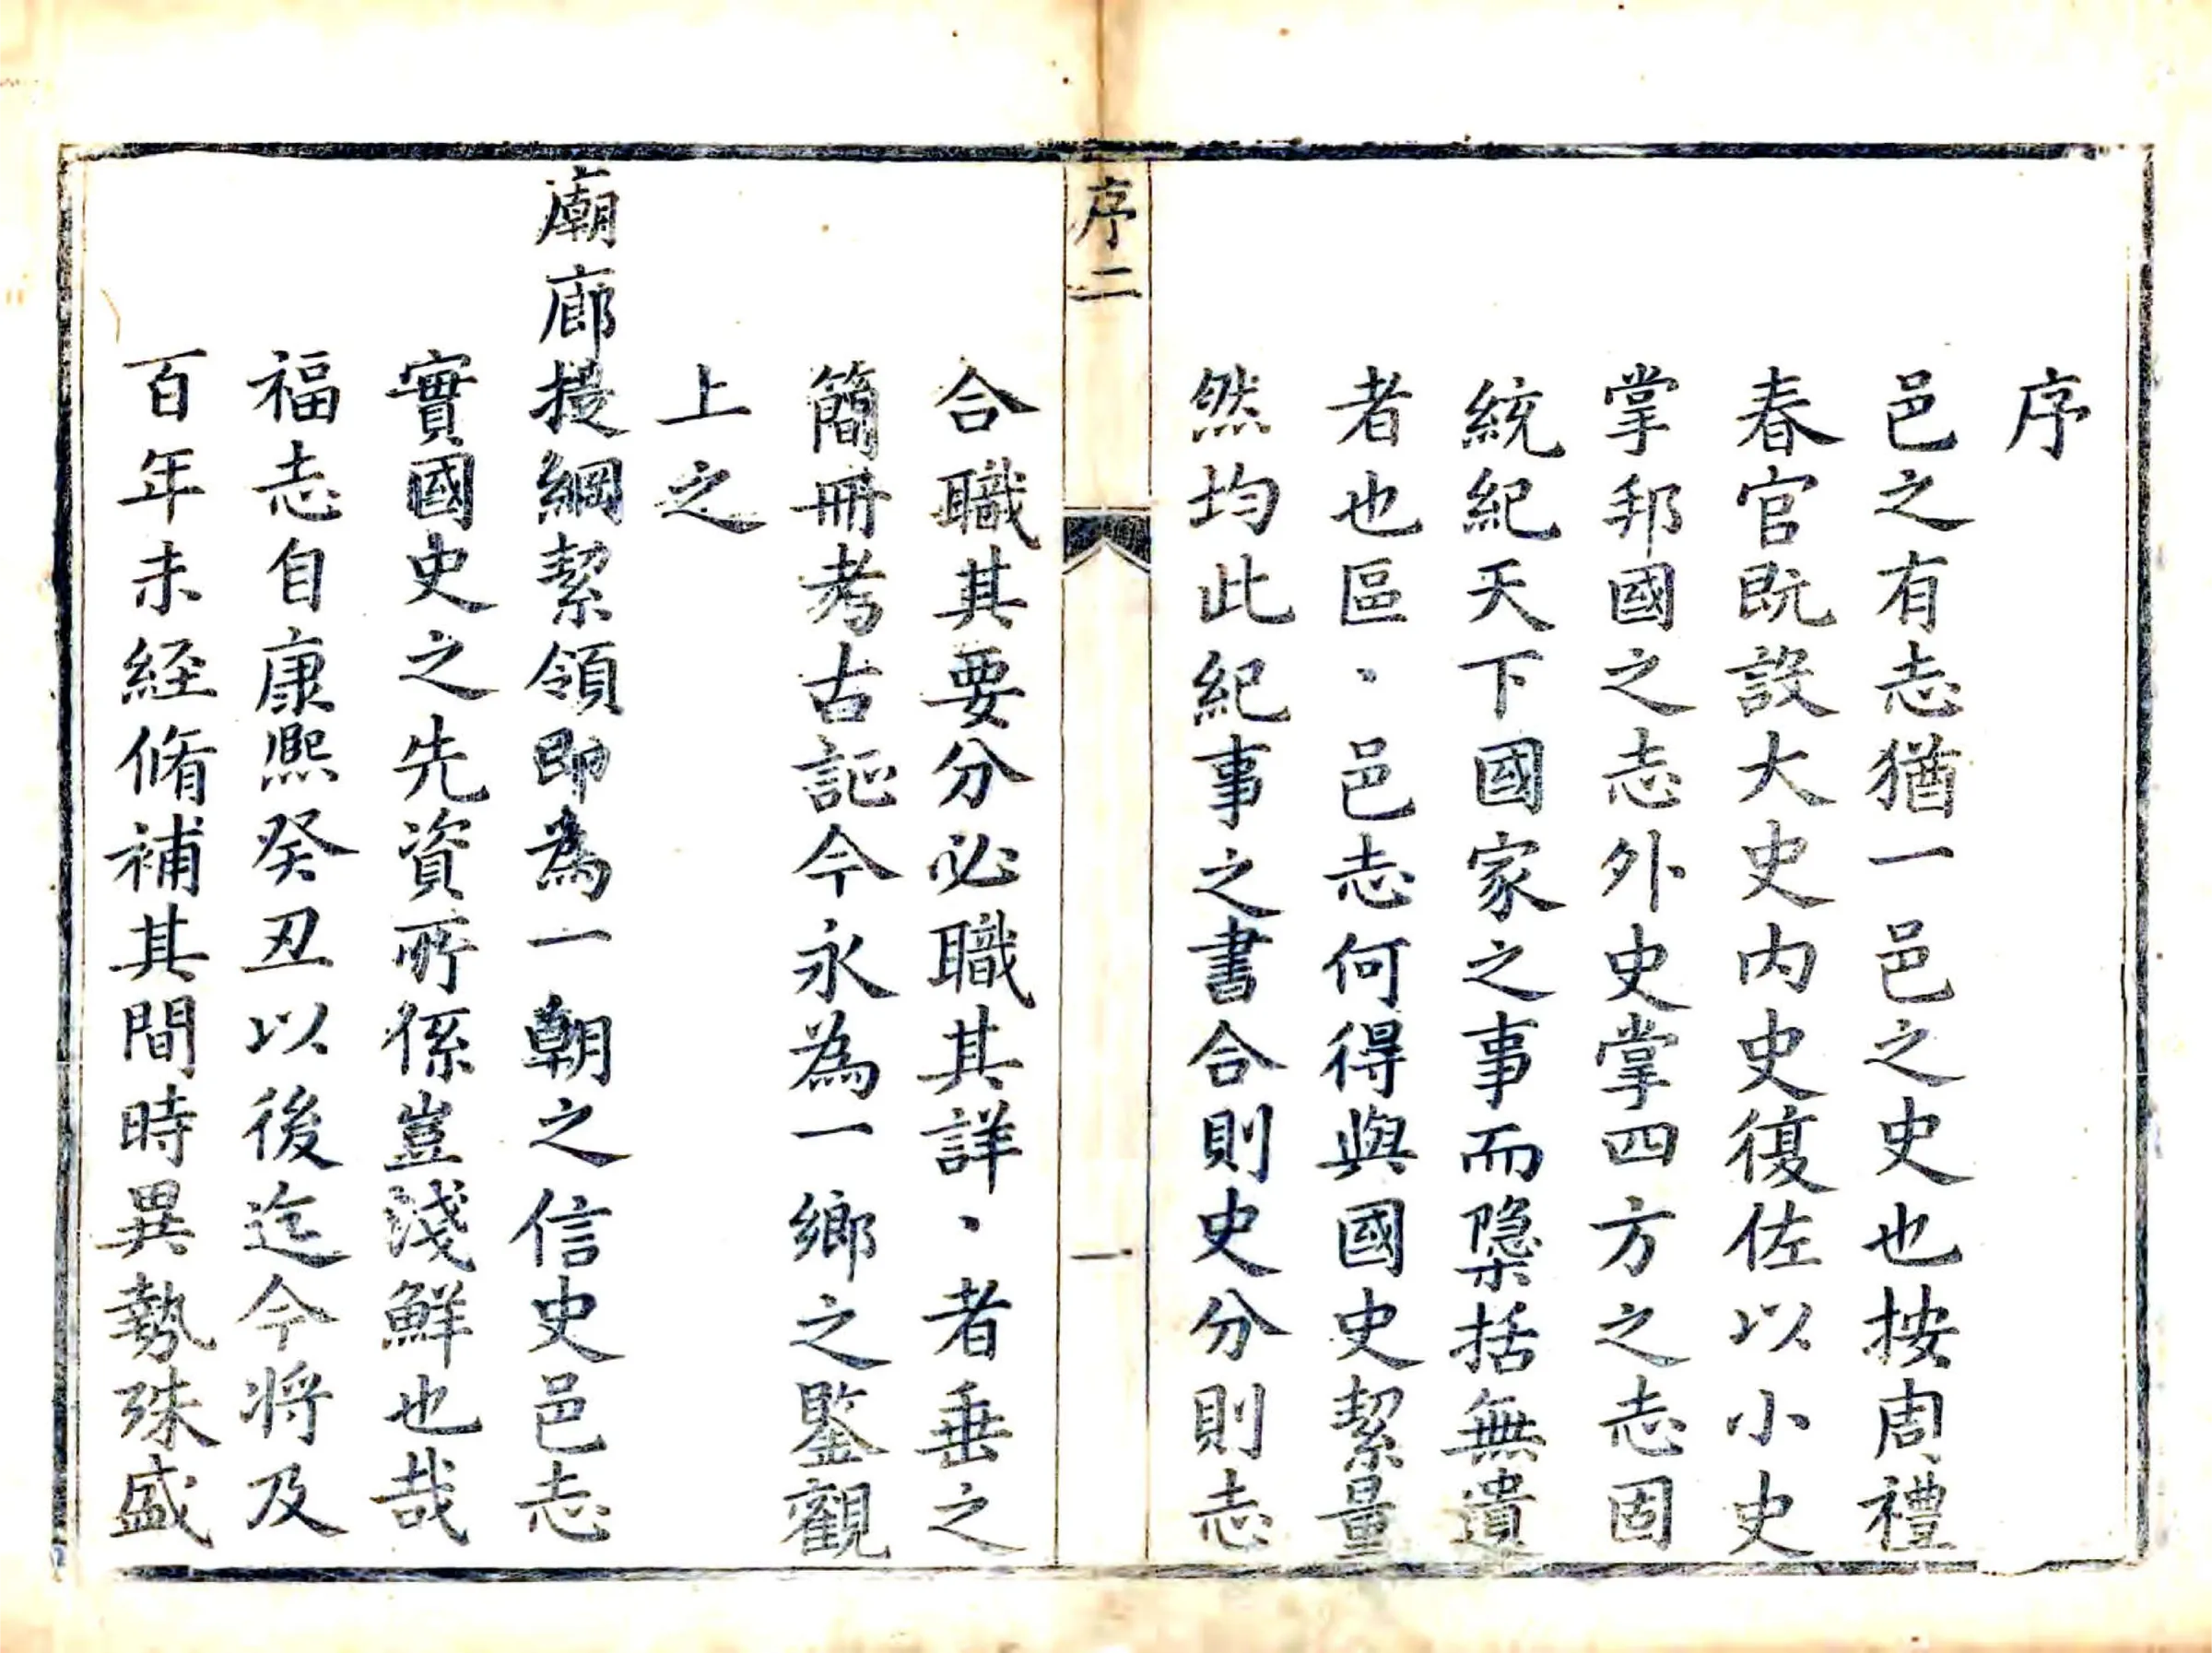 序
邑之有志猶一邑之史也按周禮
春官既設大史内史復佐以小史
掌邦國之志外史掌四方之志固
統紀天下國家之事而隱括無遺
者也區、邑志何得與國史絜量
然均此紀事之書合則史分則志
序二
一
合職其要分必職其詳、者垂之
簡冊考古証今永為一鄉之鑒觀
上之
廟廊提綱絜領即為一朝之信史邑志
實國史之先資所係豈淺鮮也哉
福志自康熙癸丑以後迄今将及
百年未經脩補其間時異勢殊盛